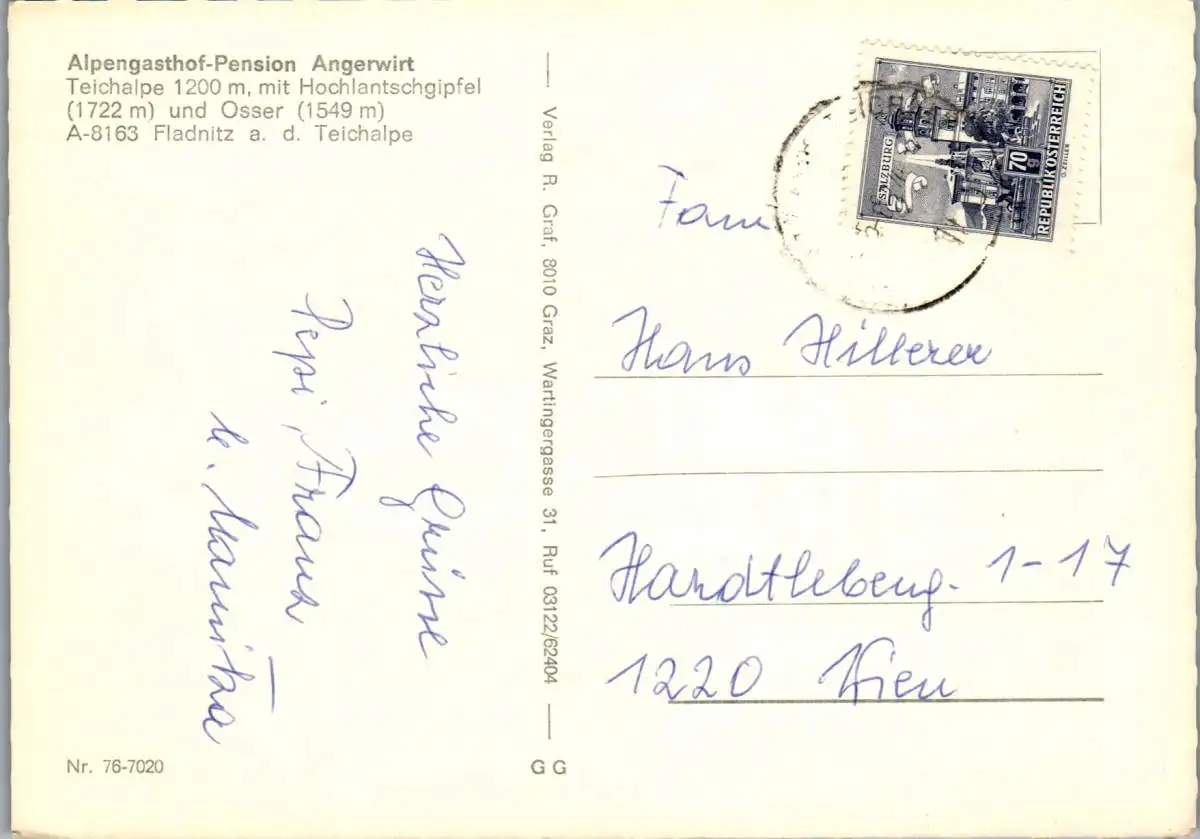 Alpengasthof-Pension Angerwirt
Teichalpe 1200 m, mit Hochlantschgipfel
(1722 m) und Osser (1549 m)
A-8163 Fladnitz a. d. Teichalpe
Herzliche Grüsse
Pepi, Franz
u. Mamitza
Nr. 76-7020
Verlag R. Graf, 8010 Graz, Wartingergasse 31, Ruf 03122/62404
G G
SALZBURG
70 g
REPUBLIK ÖSTERREICH
G. ZEILLER
Fam
Hans Hitterer
Hardtlebeng. 1-17
1220 Wien